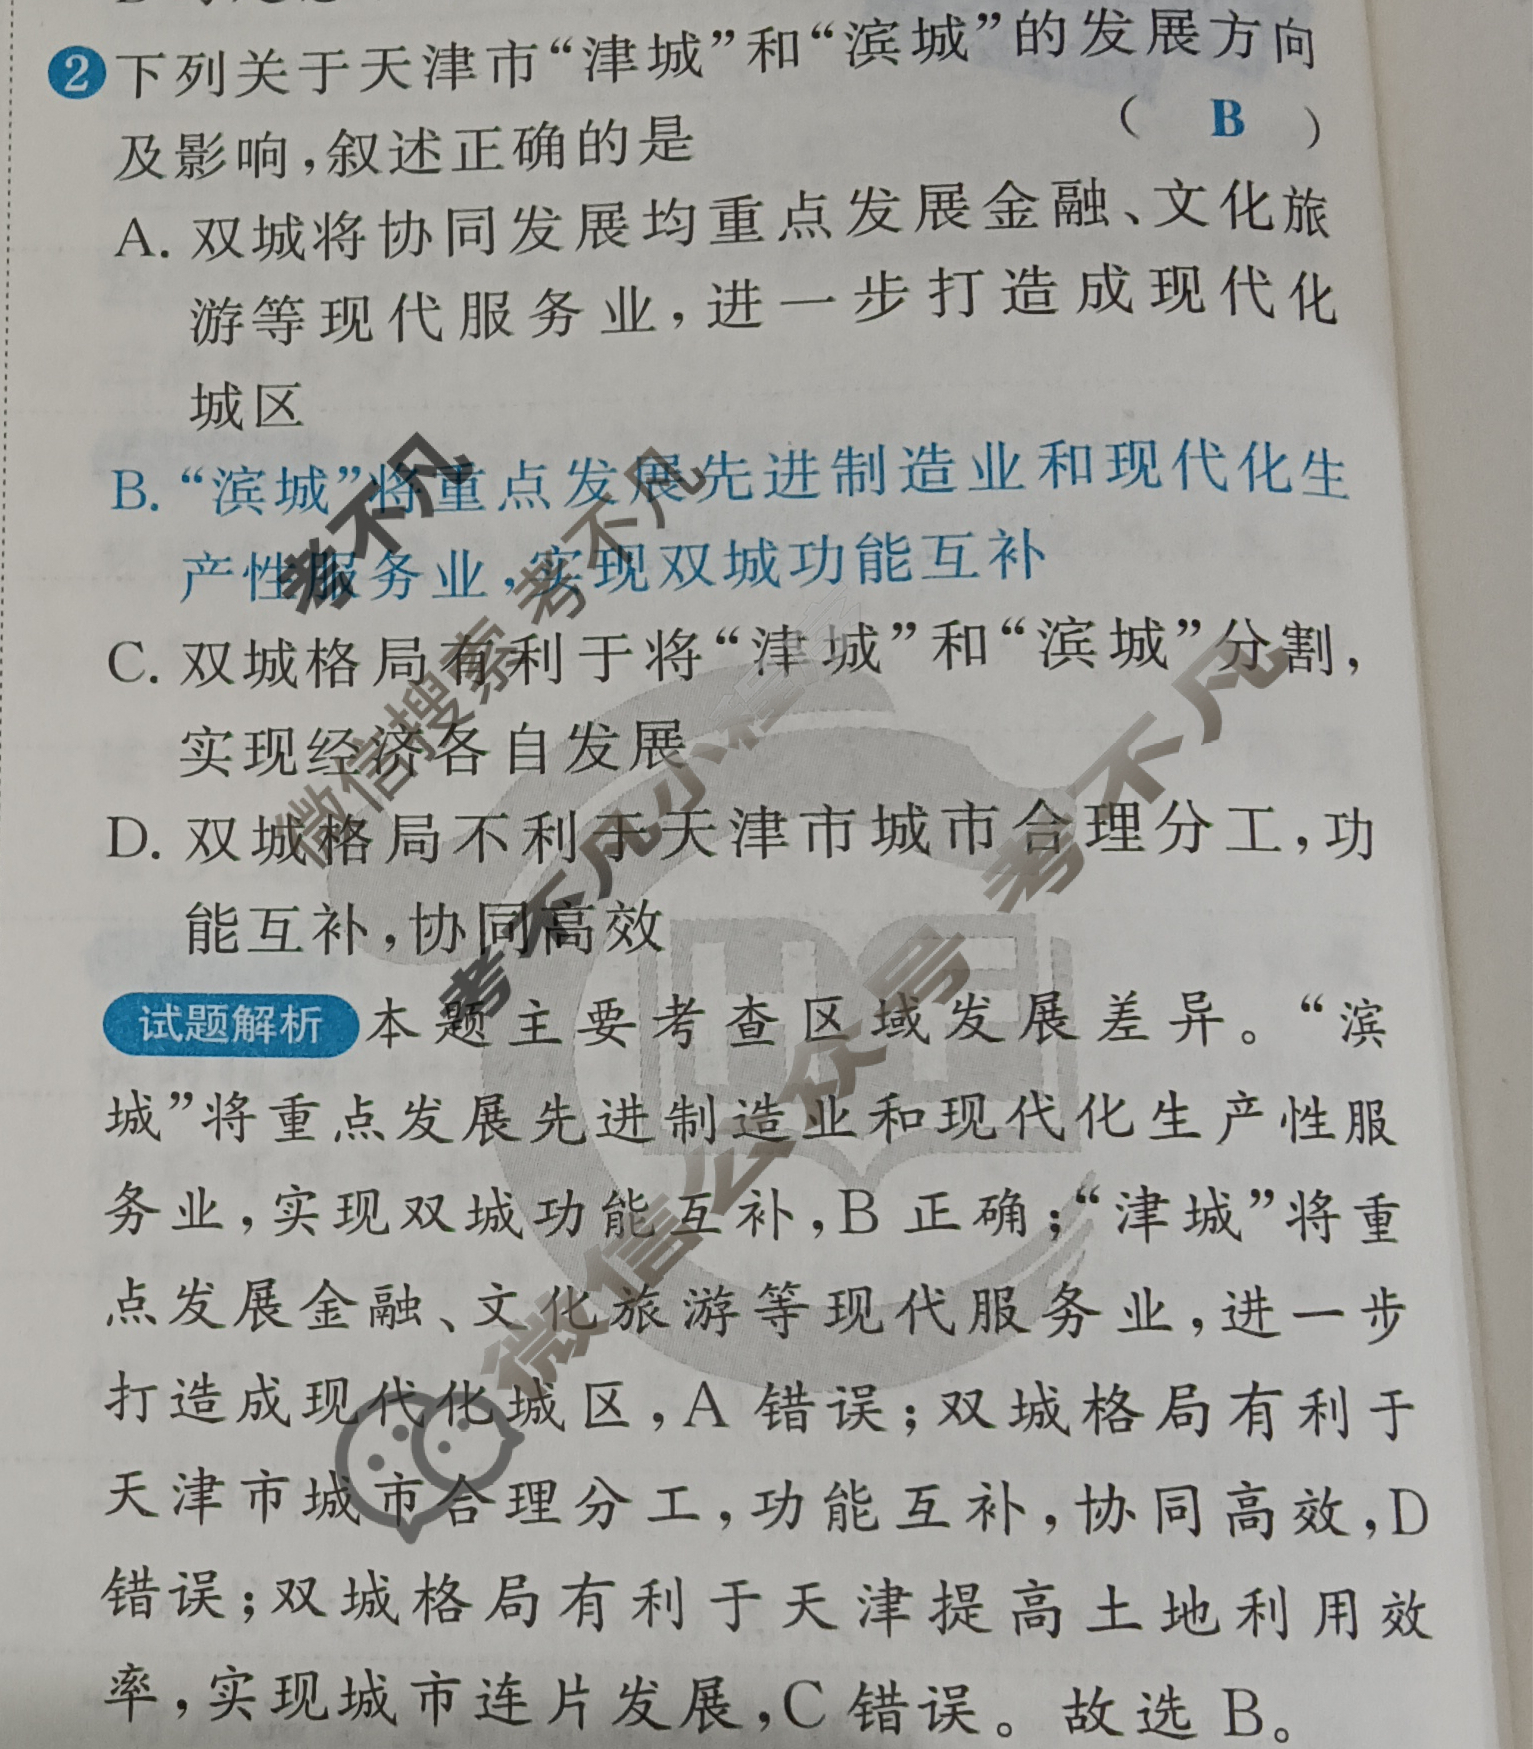 2 下列关于天津市“津城”和“滨城”的发展方向
及影响,叙述正确的是 ( B )
A. 双城将协同发展均重点发展金融、文化旅
游等现代服务业,进一步打造成现代化
城区
B. “滨城”将重点发展先进制造业和现代化生
产性服务业,实现双城功能互补
C. 双城格局有利于将“津城”和“滨城”分割,
实现经济各自发展
D. 双城格局不利于天津市城市合理分工,功
能互补,协同高效
试题解析 本题主要考查区域发展差异。“滨
城”将重点发展先进制造业和现代化生产性服
务业,实现双城功能互补,B 正确;“津城”将重
点发展金融、文化旅游等现代服务业,进一步
打造成现代化城区,A 错误;双城格局有利于
天津市城市合理分工,功能互补,协同高效,D
错误;双城格局有利于天津提高土地利用效
率,实现城市连片发展,C 错误。故选 B。
考不凡
微信搜索 考不凡
考不凡小程序
微信公众号 考不凡